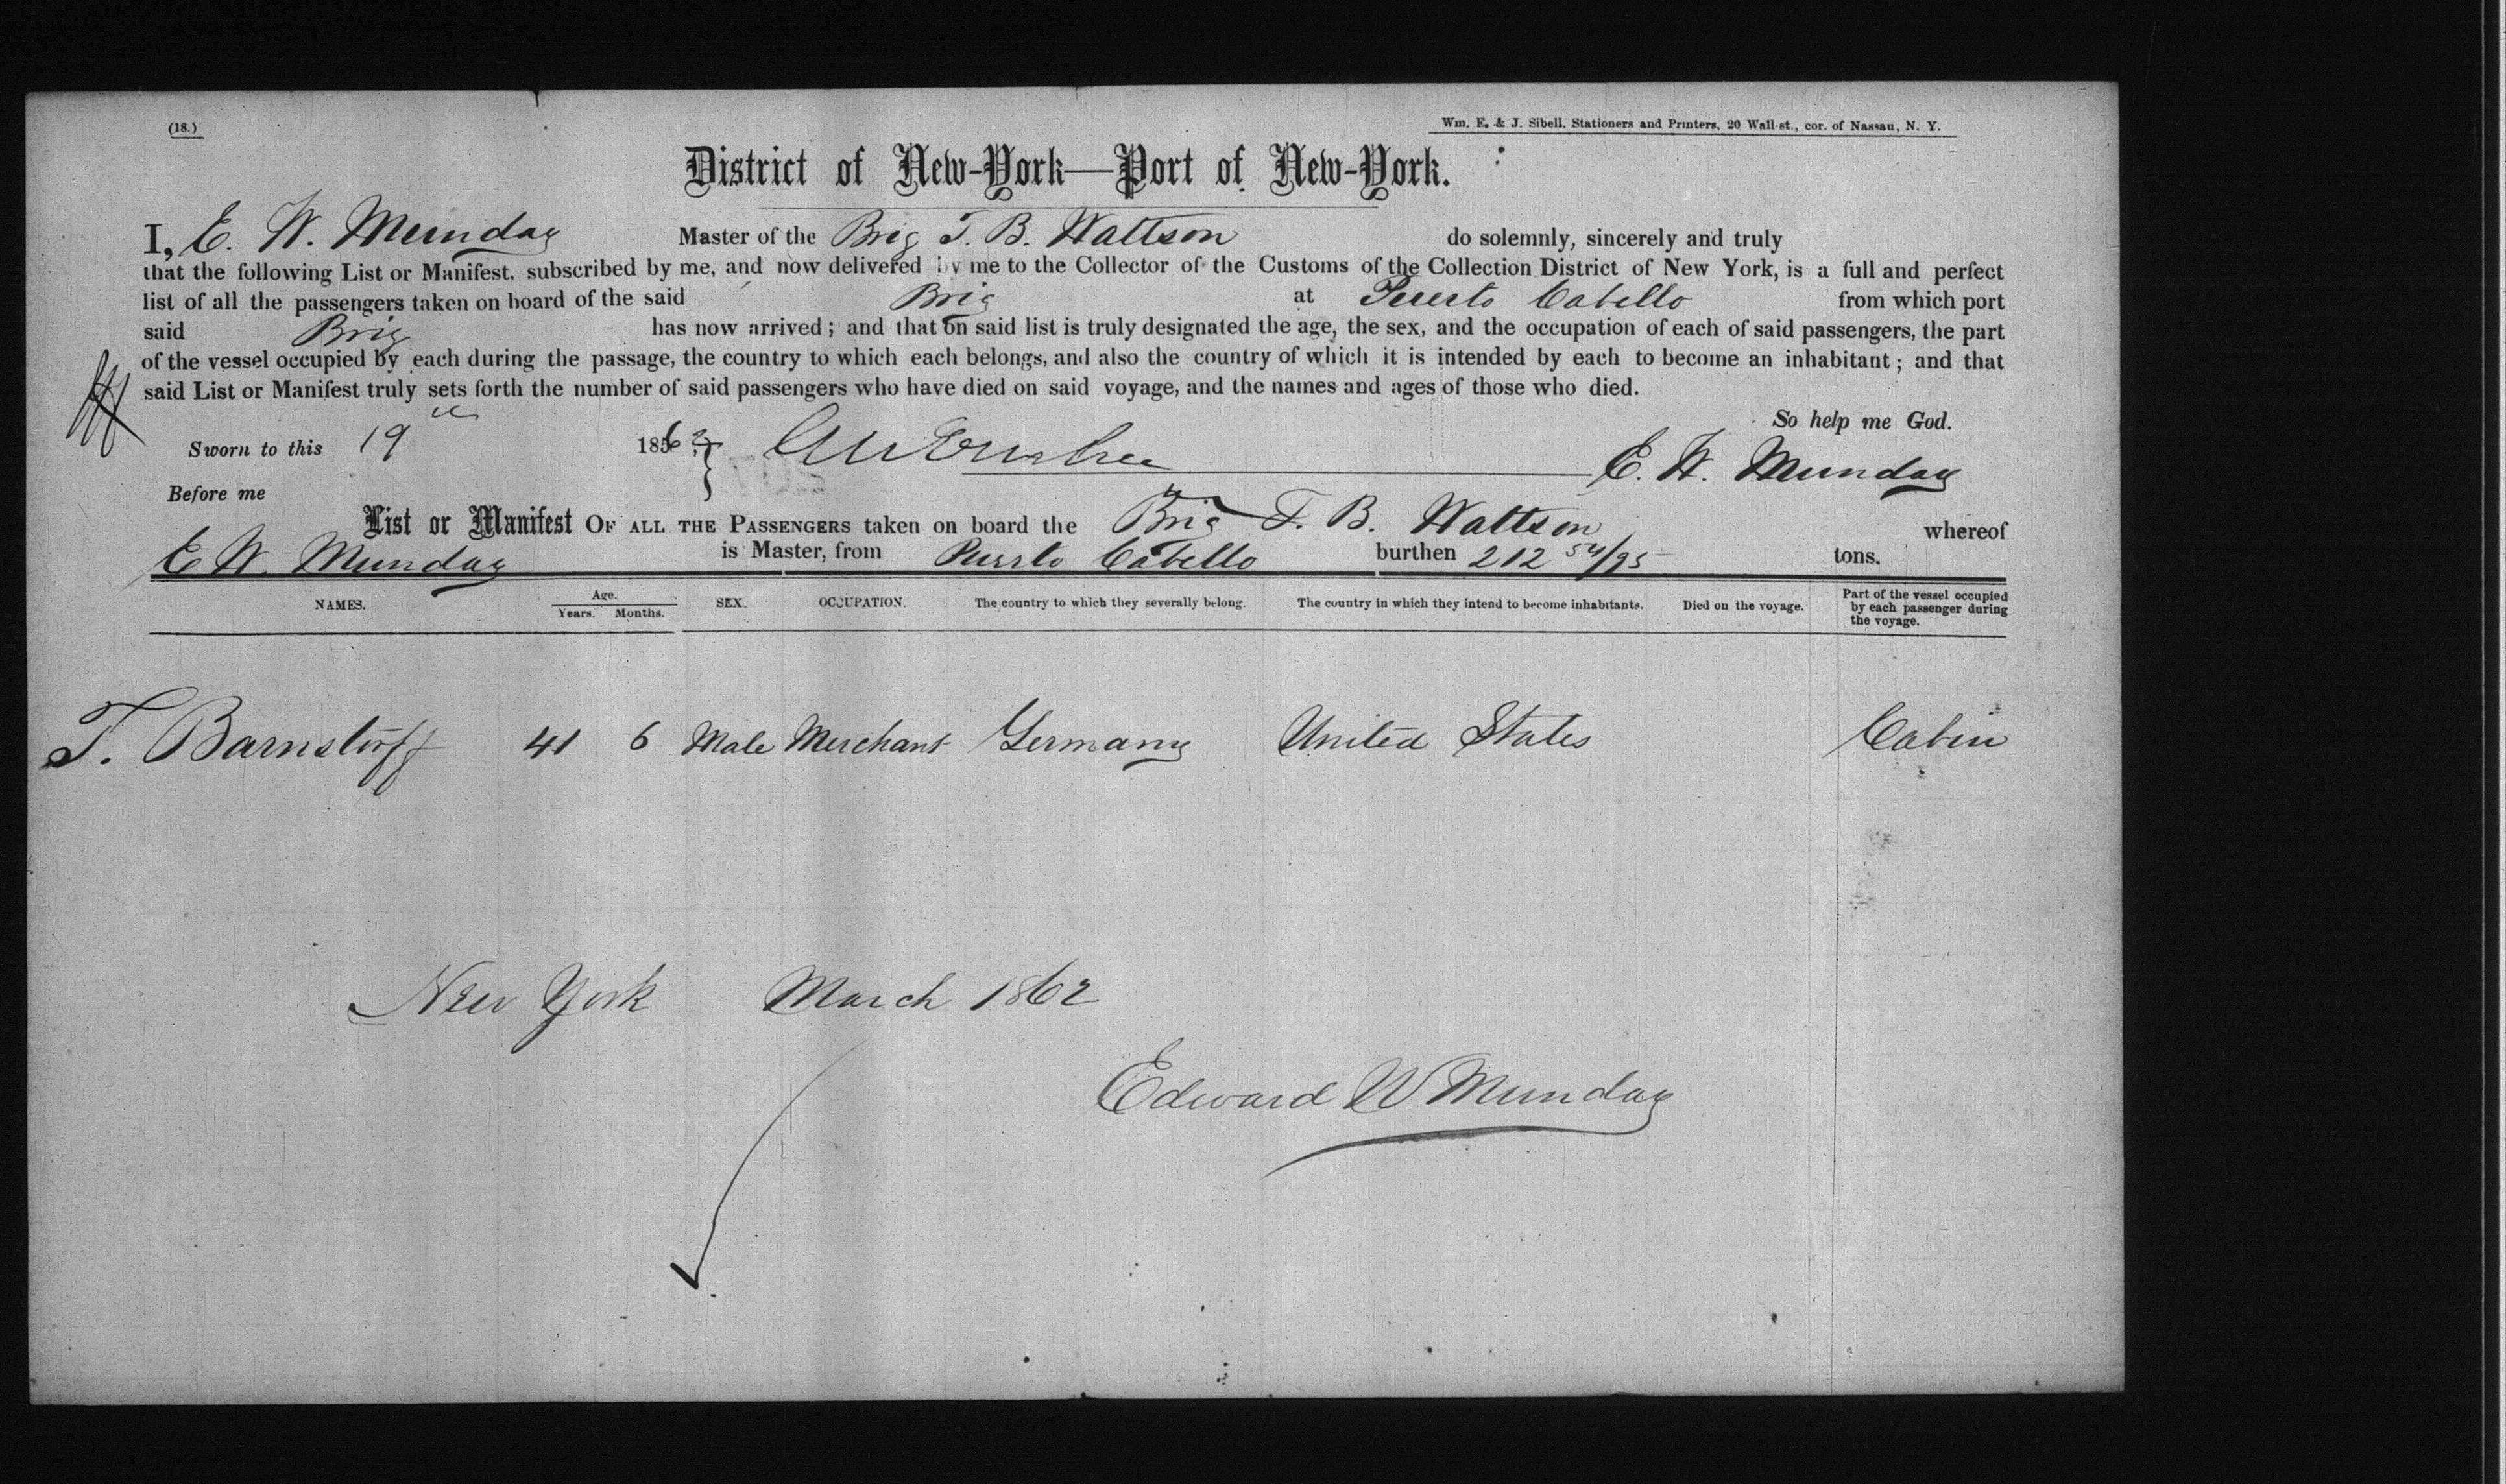 (18.)
Wm. E. & J. Sibell, Stationers and Printers, 20 Wall-st., cor. of Nassau, N. Y.
District of New-York—Port of New-York.
I, E. W. Munday Master of the Brig T. B. Wattson do solemnly, sincerely and truly
that the following List or Manifest, subscribed by me, and now delivered by me to the Collector of the Customs of the Collection District of New York, is a full and perfect
list of all the passengers taken on board of the said Brig at Puerto Cabello from which port
said Brig has now arrived; and that on said list is truly designated the age, the sex, and the occupation of each of said passengers, the part
of the vessel occupied by each during the passage, the country to which each belongs, and also the country of which it is intended by each to become an inhabitant; and that
said List or Manifest truly sets forth the number of said passengers who have died on said voyage, and the names and ages of those who died.
So help me God.
Sworn to this 19 1862 E. W. Munday
Before me
List or Manifest OF ALL THE PASSENGERS taken on board the Brig T. B. Wattson whereof
E W. Munday is Master, from Puerto Cabello burthen 212 54/95 tons.
NAMES. Age. Years. Months. SEX. OCCUPATION. The country to which they severally belong. The country in which they intend to become inhabitants. Died on the voyage. Part of the vessel occupied by each passenger during the voyage.
T. Barnstorff 41 6 Male Merchant Germany United States Cabin
New York March 1862
Edward W Munday